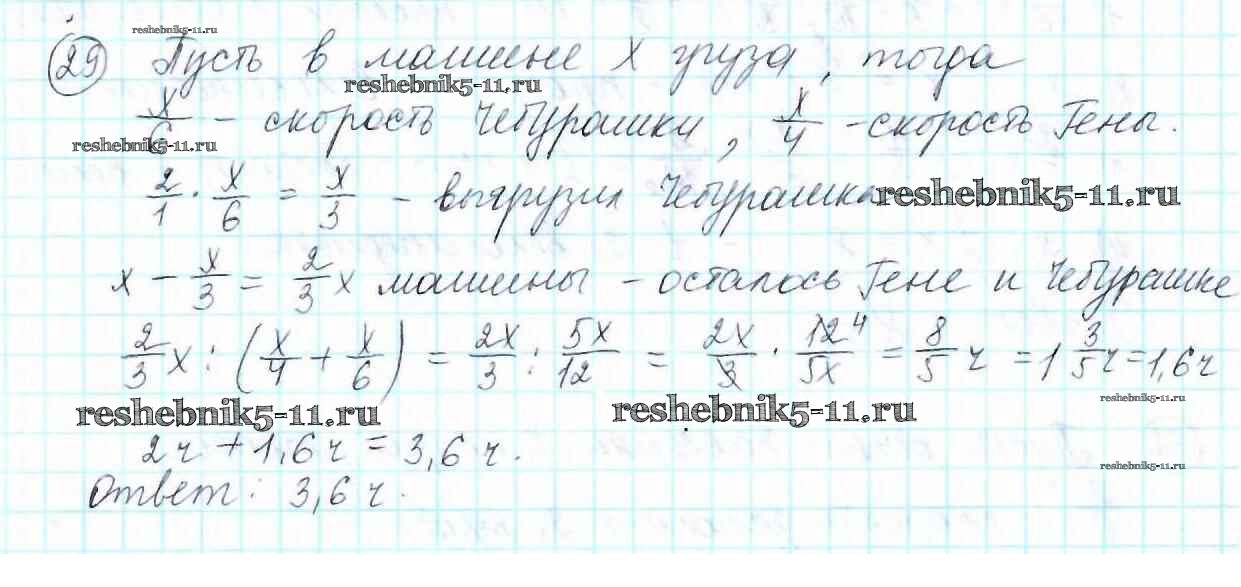 reshebnik5-11.ru
29 Пусть в машине x груза, тогда
reshebnik5-11.ru
x/6 - скорость Чебурашки, x/4 - скорость Гены.
reshebnik5-11.ru
2/1 · x/6 = x/3 - выгрузил Чебурашка
reshebnik5-11.ru
x - x/3 = 2/3 x машины - осталось Гене и Чебурашке
2/3 x : (x/4 + x/6) = 2x/3 : 5x/12 = 2x/3 · 12 4/5x = 8/5 ч = 1 3/5 ч = 1,6 ч
reshebnik5-11.ru reshebnik5-11.ru reshebnik5-11.ru
2ч + 1,6ч = 3,6 ч.
reshebnik5-11.ru
Ответ: 3,6 ч.